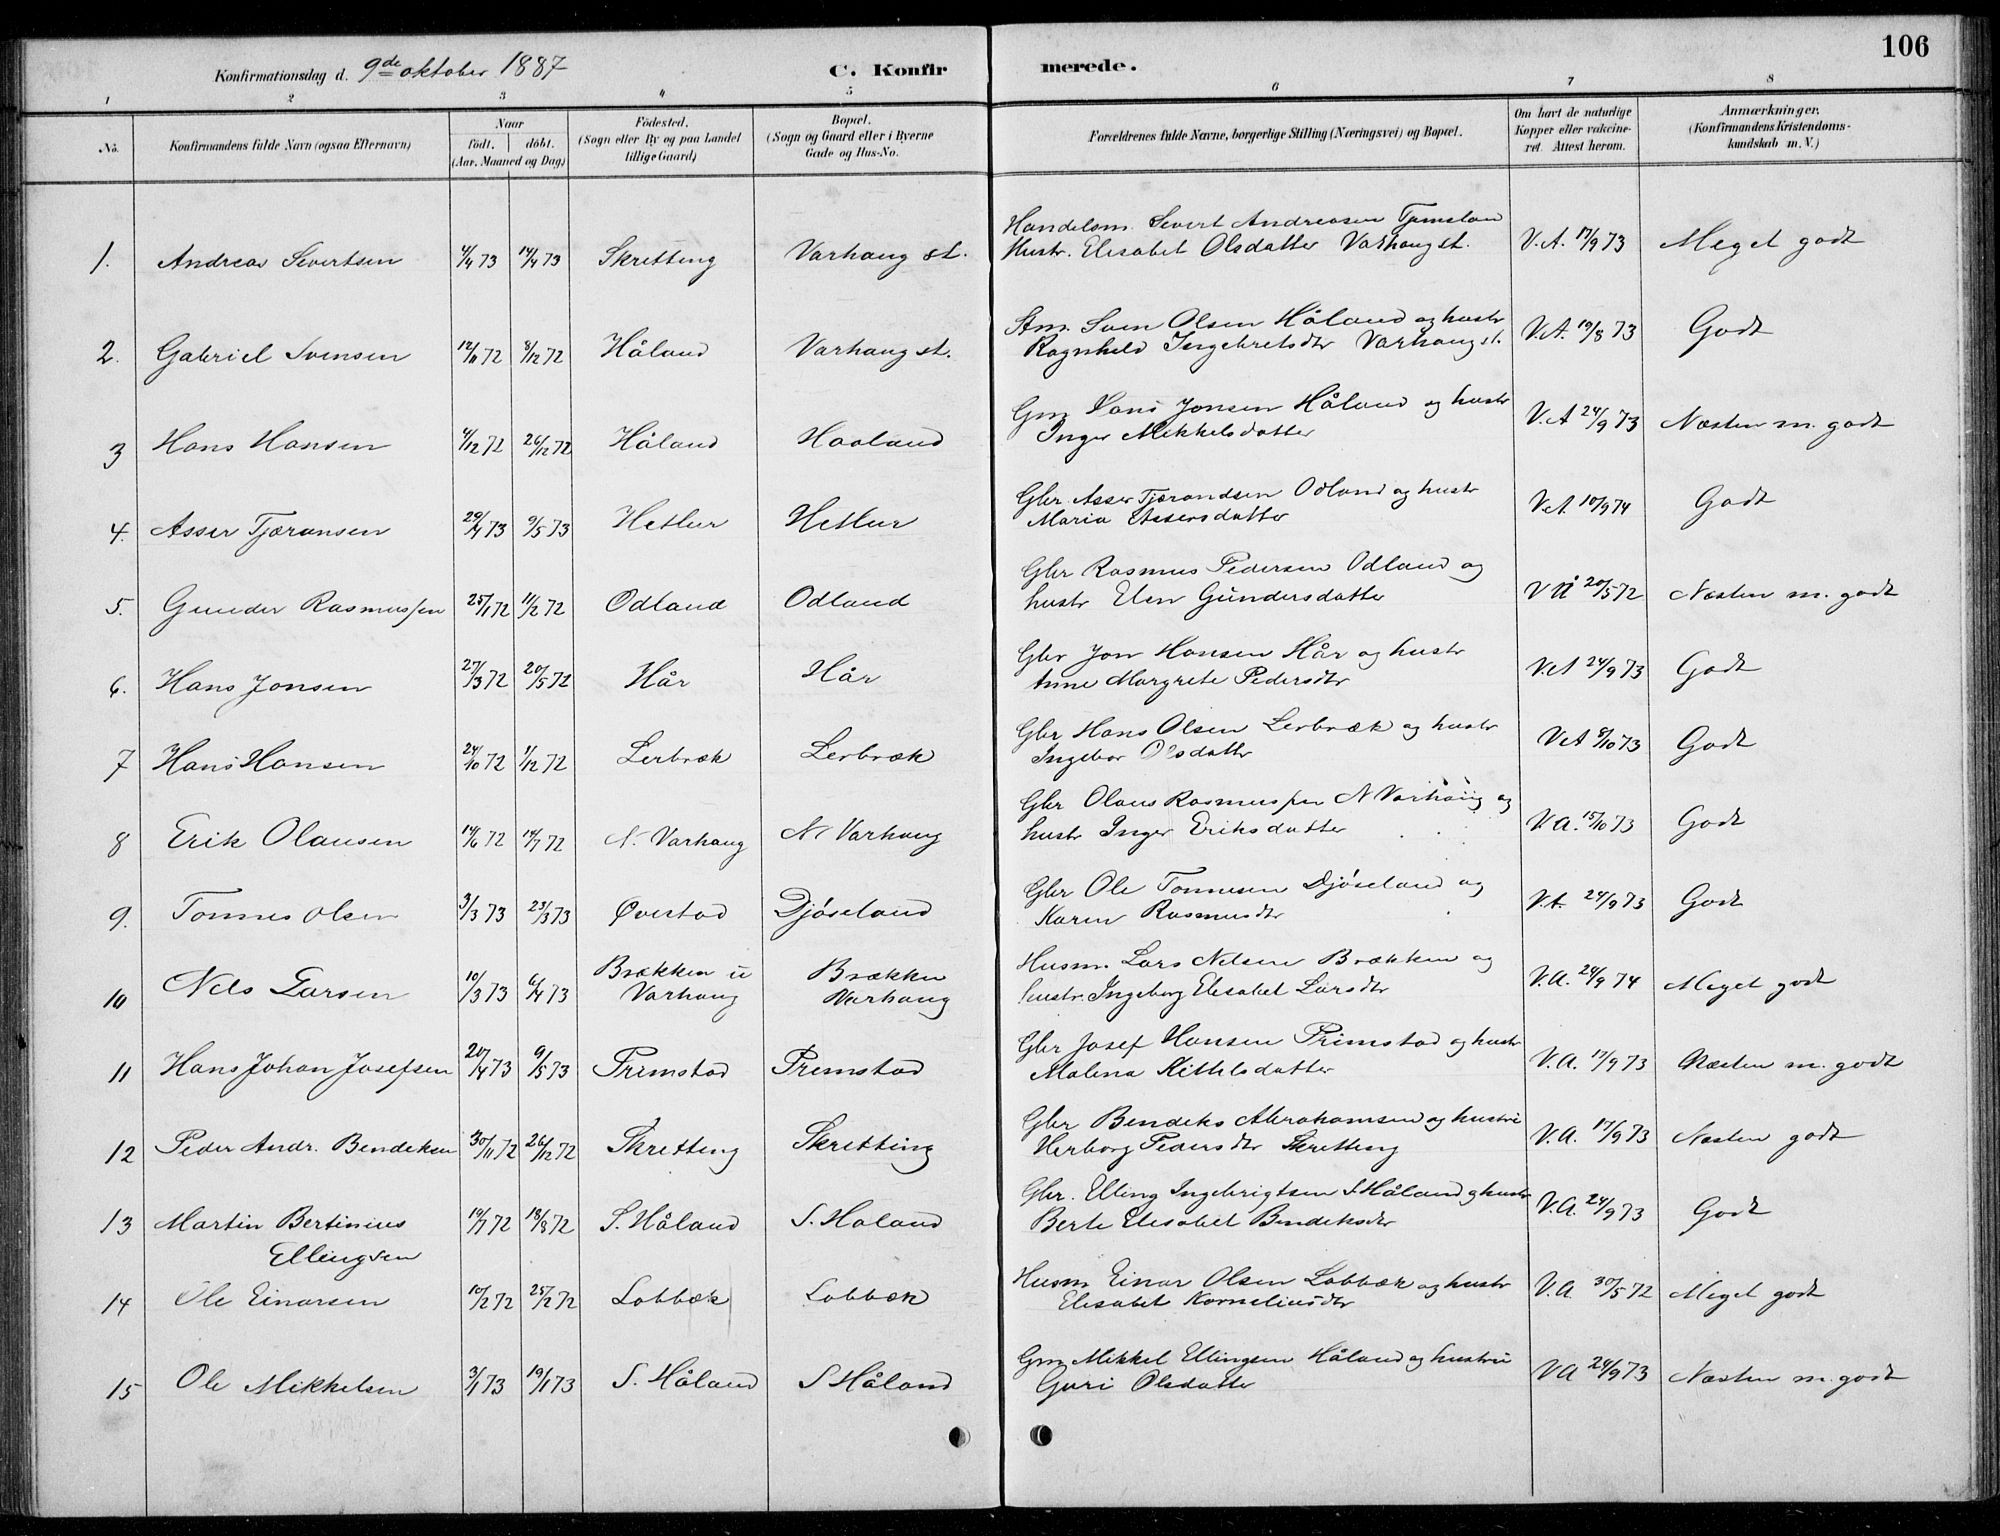 106
Konfirmationsdag d. 9de oktober 1887 C. Konfirmerede.
1 2 3 4 5 6 7 8
No. Konfirmandens fulde Navn (ogsaa Efternavn) Naar født. døbt. (Aar. Maaned og Dag) Fødested. (Sogn eller By og paa Landet tillige Gaard) Bopæl. (Sogn og Gaard eller i Byerne Gade og Hus-No. Forældrenes fulde Navne, borgerlige Stilling (Næringsvei) og Bopæl. Om havt de naturlige Kopper eller vakcineret. Attest herom. Anmærkninger. (Konfirmandens Kristendomskundskab m.V.)
1. Andreas Sivertsen 4/4 73 14/4 73 Skretting Varhaug st. Handelsm. Sivert Andreasen
Hustr. Elisabet Olsdatter Varhaug st. V.A. 17/9 73 Meget godt
2. Gabriel Svensen 12/11 72 8/12 72 Håland Varhaug st. Stm. Sven Olsen Håland og hustr
Ragnhild Ingebretsdtr Varhaug st. V.A. 19/8 73 Godt
3 Hans Hansen 4/12 72 26/12 72 Håland Haaland Gm Hans Jonsen Håland og hustr
Inger Mikkelsdatter V.A 24/9 73 Næsten m. godt
4. Asser Tjæransen 29/4 73 9/5 73 Hetlur Hetlur Gbr. Asser Tjærandsen Odland og hustr
Maria Assersdatter V.A. 10/9 74 Godt
5. Gunder Rasmussen 25/1 72 11/2 72 Odland Odland Gbr Rasmus Pedersen Odland og
hustr Elen Gundersdatter V A 20/5 72 Næsten m. godt
6. Hans Jonsen 27/3 72 20/5 72 Hår Hår Gbr Jon Hansen Hår og hustr
Anne Margrete Pedersdtr V.A 24/9 73 Godt
7 Hans Hansen 24/10 72 1/12 72 Lerbræk Lerbræk Gbr Hans Olsen Lerbræk og hustr
Ingebor Olsdattr V.A 8/10 73 Godt
8 Erik Olausen 14/6 72 14/7 72 N. Varhaug N Varhaug Gbr Olaus Rasmussen N Varhaug og
hustr Inger Eriksdatter V.A. 15/10 73 Godt
9. Tønnes Olsen 3/3 73 23/3 73 Øvestad Djøseland Gbr Ole Tønnesen Djøseland og
Karen Rasmusdtr V.A. 24/9 73 Godt
10 Nels Larsen 10/3 73 6/4 73 Brækken u Varhaug Brækken Varhaug Husm. Lars Nelsen Brækken og
hustr. Ingeborg Elisabet Larsdtr V.A. 24/9 74 Meget godt
11 Hans Johan Josefsen 20/4 73 9/5 73 Primstad Primstad Gbr Josef Hansen Primstad og hustr
Malena Kittelsdatter V.A. 17/9 73 Næsten m. godt
12 Peder Andr. Bendiksen 30/11 72 26/12 72 Skretting Skretting Gbr Bendiks Abrahamsen og hustru
Herborg Pedersdtr Skretting V.A. 17/9 73 Næsten godt
13 Martin Bertinius
Ellingsen 19/7 72 18/8 72 S. Håland S. Haland Gbr. Elling Ingebrigtsen S. Håland og hustr
Berte Elisabet Bendiksdtr V.A. 24/9 73 Godt
14 Ole Einarsen 10/2 72 25/2 72 Lobbæk Lobbæk Husm Einar Olsen Lobbæk og hustr
Elisabet Korneliusdtr V.A. 30/5 72 Meget godt
15 Ole Mikkelsen 3/1 73 19/1 73 S. Håland S Håland Gm Mikkel Ellingsen Håland og hustru
Guri Olsdatter V A 24/9 73 Næsten m. godt